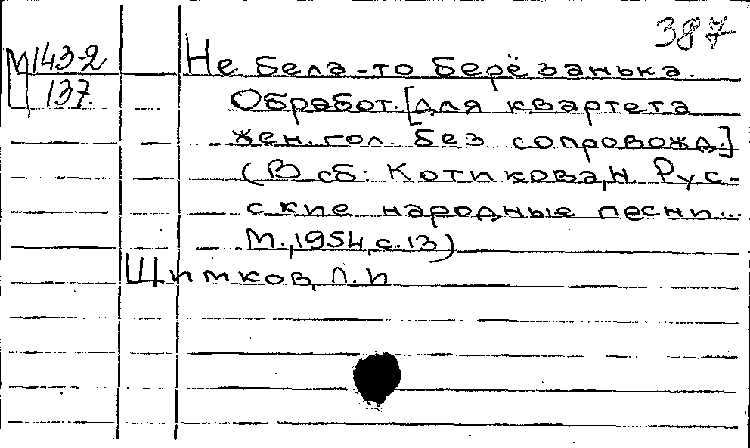 387
М143-2
Ц137
Не бела-то берёзанька.
Обработ. [для квартета
жен. гол. без сопровожд.]
(В сб: Котикова, Н. Рус-
ские народные песни...
М., 1954, с. 13)
Шимков, Л. И